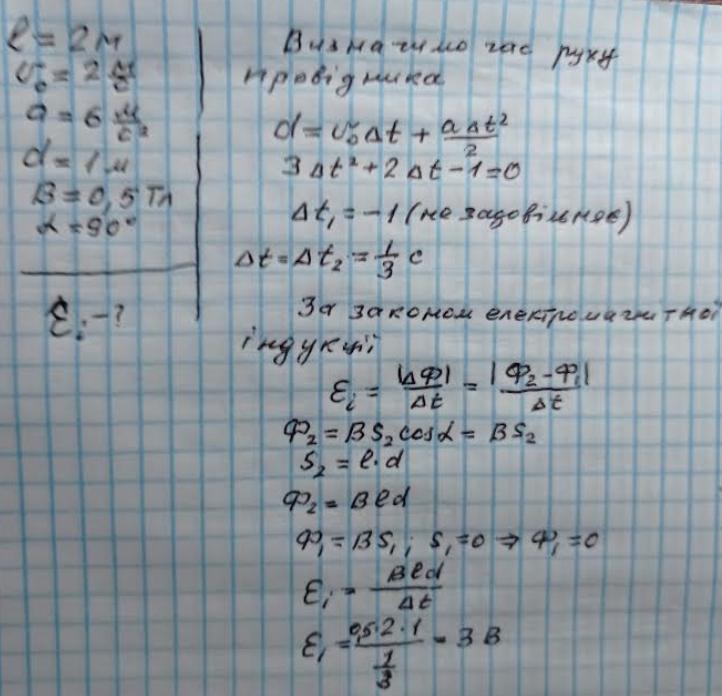 l = 2 м
v₀ = 2 м/с
a = 6 м/с²
d = 1 м
B = 0,5 Тл
α = 90°
Ɛi - ?
Визначимо час руху
провідника
d = v₀Δt + aΔt²/2
3Δt² + 2Δt - 1 = 0
Δt₁ = -1 (не задовільняє)
Δt = Δt₂ = 1/3 с
За законом електромагнітної
індукції
Ɛi = |ΔФ|/Δt = |Ф₂ - Ф₁|/Δt
Ф₂ = BS₂cosα = BS₂
S₂ = l · d
Ф₂ = Bld
Ф₁ = BS₁; S₁ = 0 ⇒ Ф₁ = 0
Ɛi = Bld/Δt
Ɛi = 0,5·2·1/(1/3) = 3 В